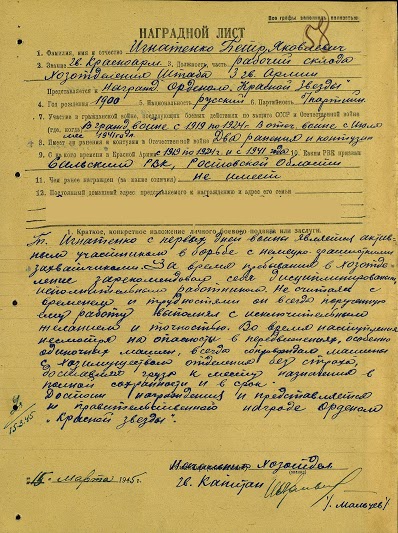 Все графы заполнять полностью
НАГРАДНОЙ ЛИСТ
1. Фамилия, имя и отчество Игнатенко Петр Яковлевич
2. Звание гв. Красноарм. 3. Должность, часть рабочий склада
Хозотделения Штаба 3 гв. Армии
Представляется к Награжд. Орденом „Красной Звезды"
4. Год рождения 1900 5. Национальность русский 6. Партийность
7. Участие в гражданской войне, последующих боевых действиях по защите СССР и Отечественной войне
(где, когда) В гражд. войне с 1919 по 1924 г. В отеч. войне с Июля
м-ца 1941 года
8. Имеет ли ранения и контузии в Отечественной войне Два ранения и контузия
9. С какого времени в Красной Армии с 1919 по 1924 г. и с 1941 года 10. Каким РВК призван
РВК, Ростовской области
11. Чем ранее награжден (за какие отличия) не имеет
12. Постоянный домашний адрес представляемого к награждению и адрес его семьи
I. Краткое, конкретное изложение личного боевого подвига или заслуги.
Т. Игнатенко с первых дней войны является актив-
ным участником в борьбе с немецко-фашистскими
захватчиками. За время пребывания в хозотде-
ление зарекомендовал себя дисциплинированным,
исполнительным работником. Не считаясь с
временем и трудностями он всегда порученную
ему работу выполнял с исключительным
желанием и точностью. Во время наступления
несмотря на опасности в передвижениях, особенно
одиночных машин, всегда сопровождал машины
с хозимуществом отделения без страха,
доставляя груза к месту назначения в
полной сохранности и в срок.
Достоин награждения и представляется
к правительственной награде Орденом
„Красной звезды".
15.3.45
Начальник Хозотдел.
гв. Капитан
/Мальцев/
15 марта 1945 г.